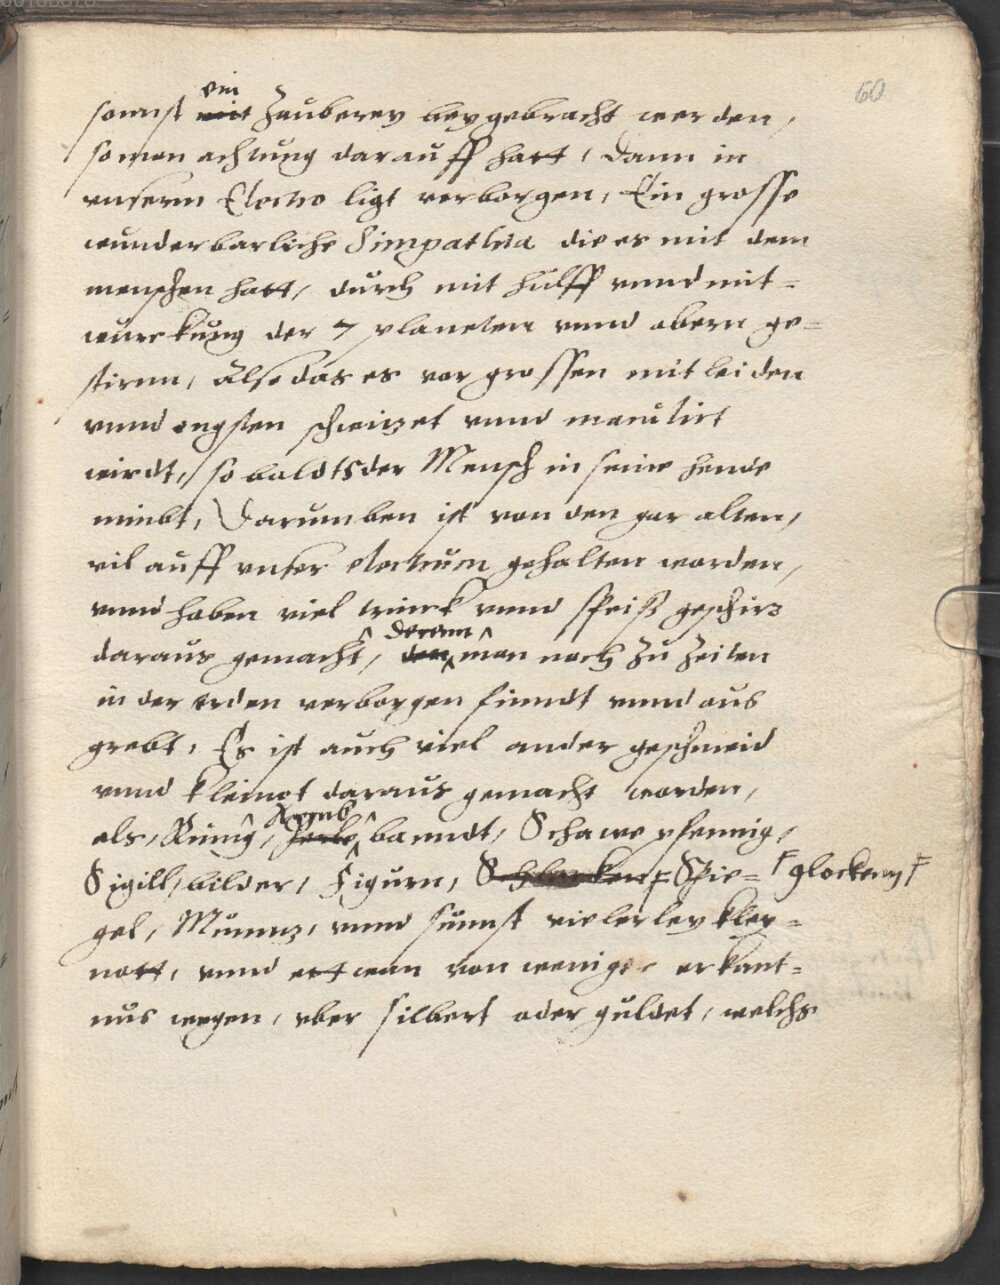 60
sonnst ein mit Zauberey beygebracht werden,
so man achtung darauff hatt, Dann in
vnserm Electro ligt verborgen, Ein grosse
wunderbarliche Simpathia die es mit dem
menschen hatt, durch mit hülff vnnd mit=
würckung der 7 planeten vnnd obern ge=
stirnn, Also das es vor grossen mitleiden
vnnd engsten schwitzet vnnd maculirt
wirdt, so baldts der Mensch in seine hende
nimbt, Darumben ist von den gar alten,
vil auff vnser electrum gehalten worden,
vnnd haben viel trinck vnnd speiß geschirz
daraus gemacht, deren den man noch zu Zeiten
in der erden verborgen findt vnnd aus
grebt, Es ist auch viel ander geschmeid
vnnd kleinot daraus gemacht worden,
als, Ring, Armb banndt, Schawe pfennig,
Sigill, bilder, Figurn, Spie= glocken,
gel, Münnz, vnnd sunst vielerley kley=
nott, vnnd ettwan von weniger erkant=
nus wegen, vber silbert oder guldet, welchs